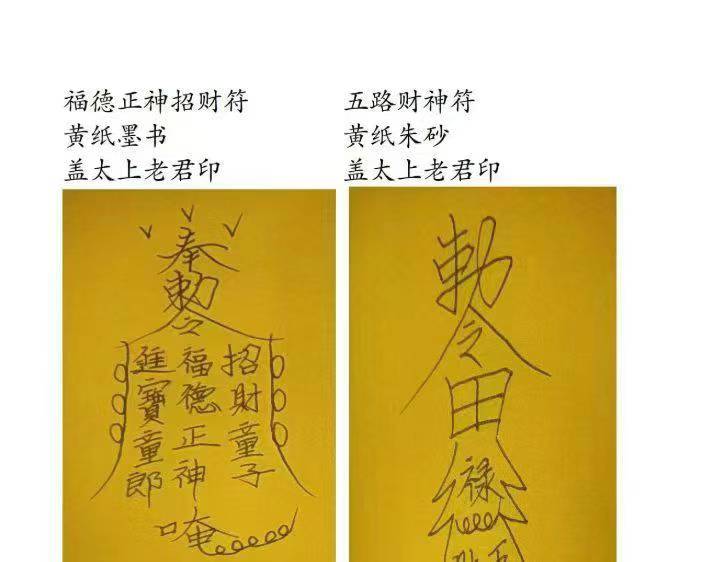 福德正神招财符
黄纸墨书
盖太上老君印
五路财神符
黄纸朱砂
盖太上老君印
奉
勅
令
招財童子
福德正神
進寶童郎
唵
勅
令
田
禄